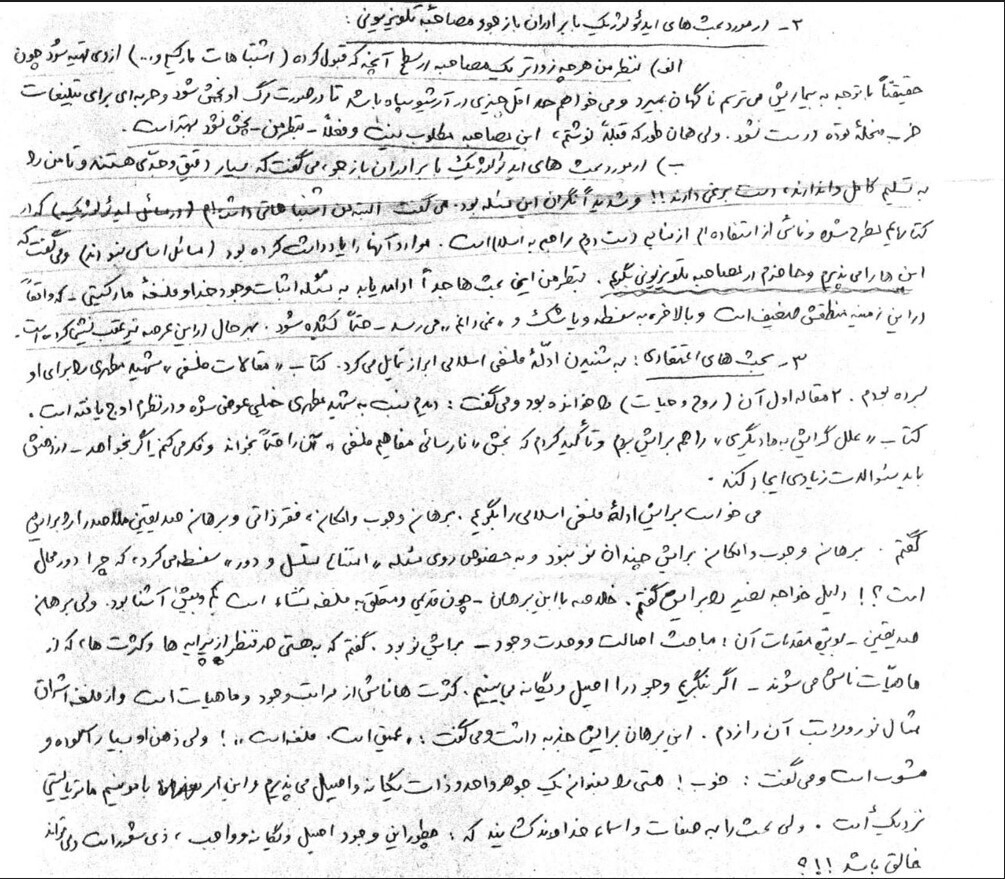 ۲- در مورد بحث‌های ایدئولوژیک با برادران بازجو و مصاحبهٔ تلویزیونی:
الف) بنظر من هرچه زودتر یک مصاحبه در سطح آنچه که قبول کرده (اشتباهات مارکسیسم و...) از وی تهیه شود چون
حقیقتاً با توجه به بیماریش می‌ترسم ناگهان بمیرد و می‌خواهم حداقل چیزی در آرشیو سپاه باشد تا در صورت مرگ او پخش شود و حربه‌ای برای تبلیغات
حزب منحلهٔ توده درست نشود. ولی همان طور که قبلاً نوشتم، این مصاحبه مطلوب نیست و فعلاً - بنظر من - پخش نشود بهتر است.
ب) در مورد بحث های ایدئولوژیک با برادران بازجو، می‌گفت که بسیار دقیق و جدی هستند و تا من را
به تسلیم کامل وا ندارند، دست بر نمی دارند!! و شدیداً نگران این مسئله بود. می‌گفت البته من اشتباهاتی داشته‌ام (در مسائل ایدئولوژیک) که در
کتابهایم مطرح شده و ناشی از استفاده‌ام از منابع دست دوم راجع به اسلام است. موارد آنها را یادداشت کرده بود (مسائل اساسی نبودند) و می‌گفت که
این ها را می پذیرم و حاضرم در مصاحبه تلویزیونی بگویم. بنظر من این بحث‌ها باید ادامه یابد به مسئله اثبات وجود خدا و فلسفهٔ مارکسیستی - که واقعاً
در این زمینه منطقش ضعیف است و بالاخره به سفسطه و یا شک و «نمی دانم» می رسد - حتماً کشیده شود. بهر حال در این عرصه نیز عقب نشینی کرده است.
۳- بحث های اعتقادی: به شنیدن ادلّهٔ فلسفی اسلامی ابراز تمایل می کرد. کتاب «مقالات فلسفی» شهید مطهری را برای او
برده بودم. ۲ مقاله اول آن (روح و حیات) را خوانده بود و می‌گفت: دیدم نسبت به شهید مطهری خیلی عوض شده و در نظرم اوج یافته است.
کتاب «علل گرایش به مادیگری» را هم برایش بردم و تأکید کردم که بخش «نارسائی مفاهیم فلسفی» آن را حتماً بخواند و فکر می کنم اگر بخواهد - در ذهنش
باید سئوالات زیادی ایجاد کند.
می خواست برایش ادلهٔ فلسفی اسلامی را بگویم. برهان وجوب و امکان، فقر ذاتی و برهان صدیقین ملاصدرا را برایش
گفتم. برهان وجوب و امکان برایش چندان نو نبود و به خصوص روی مسئله «امتناع تسلسل و دور» سفسطه می کرد، که چرا دور محال
است؟! دلیل خواجه نصیر را برایش گفتم. خلاصه با این برهان - چون قدیمی و متعلق به فلسفه مشاء است کم و بیش آشنا بود. ولی برهان
صدیقین - بویژه مقدمات آن: مباحث اصالت و وحدت وجود - برایش نو بود. گفتم که به هستی صرفنظر از پیرایه ها و کثرت ها، که از
ماهیّات ناشی می شوند - اگر بنگریم وجود را اصیل و یگانه می بینیم. کثرت ها ناشی از مراتب وجود و ماهیات است و از فلسفه اشراق
مثال نور و مراتب آن را زدم. این برهان برایش جذبه داشت و می گفت: «عمیق است. فلسفه است»! ولی ذهن او بسیار آلوده و
مشوب است و می گفت: خوب! هستی را بعنوان یک جوهر واحد و ذات یگانه و اصیل می پذیرم و این امر با مونیسم ماتریالیستی
نزدیک است. ولی بحث را به صفات و اسماء خداوند کشانید که: چطور این وجود اصیل و یگانه و واجب، ذی شعور است و می تواند
خالق باشد!!؟